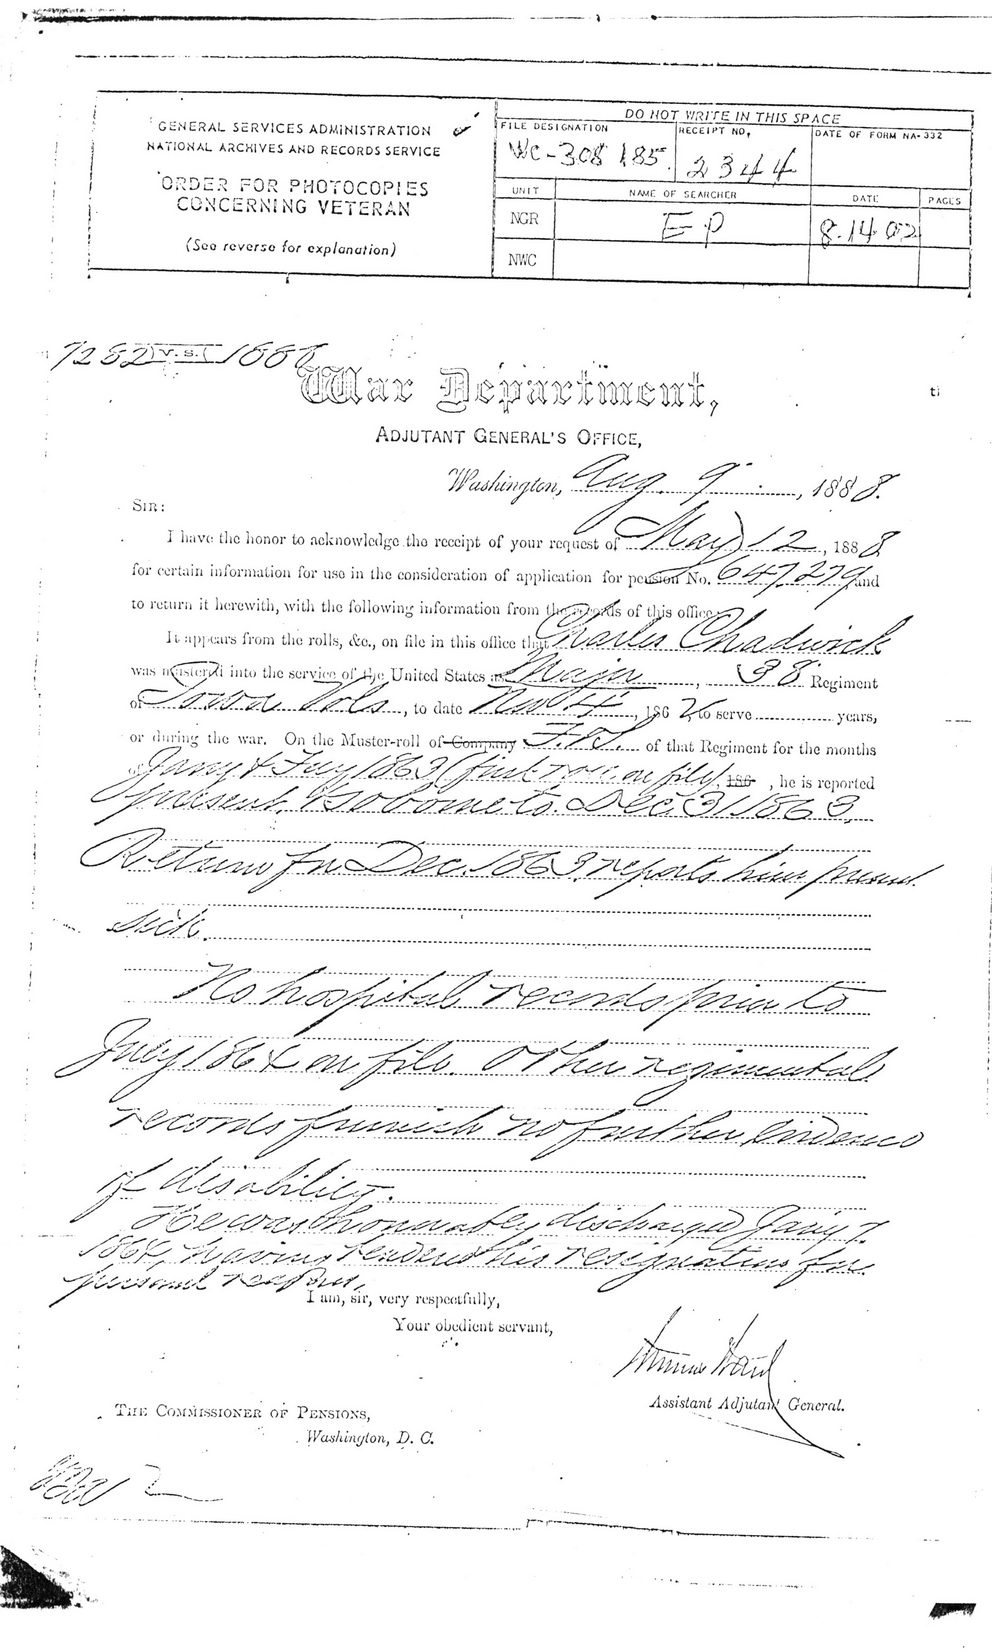 GENERAL SERVICES ADMINISTRATION
NATIONAL ARCHIVES AND RECORDS SERVICE
ORDER FOR PHOTOCOPIES
CONCERNING VETERAN
(See reverse for explanation)
DO NOT WRITE IN THIS SPACE
FILE DESIGNATION
WC-308 185.
RECEIPT NO.
2344
DATE OF FORM NA-332
UNIT
NAME OF SEARCHER
DATE
PAGES
NGR
EP
8.14.02
NWC
7282 V.S. 1888
War Department,
ADJUTANT GENERAL'S OFFICE,
Washington, Aug. 9, 1888.
SIR:
I have the honor to acknowledge the receipt of your request of May 12, 1888
for certain information for use in the consideration of application for pension No. 647,279 and
to return it herewith, with the following information from the records of this office.
It appears from the rolls, &c., on file in this office that Charles Chadwick
was mustered into the service of the United States as Major, 38 Regiment
of Iowa Vols, to date Nov 4, 1862 to serve years,
or during the war. On the Muster-roll of Company F.&S. of that Regiment for the months
of Jany & Feby 1863 (first roll on file), 186 , he is reported
present. & so borne to Dec. 31 1863.
Return for Dec. 1863, reports him present
sick.
No hospital records prior to
July 1864 on file. Other regimental
records furnish no further evidence
of disability.
He was honorably discharged Jany 7.
1864, having tendered his resignation for
personal reasons.
I am, sir, very respectfully,
Your obedient servant,
Assistant Adjutant General.
THE COMMISSIONER OF PENSIONS,
Washington, D. C.